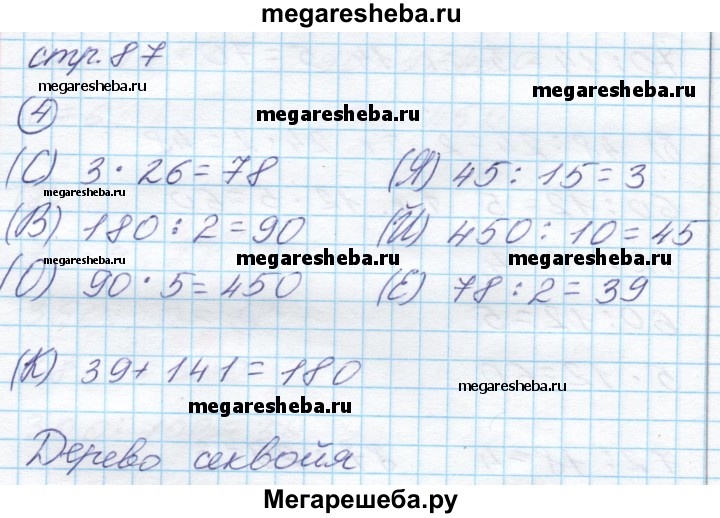 megaresheba.ru
стр. 87
megaresheba.ru
megaresheba.ru
megaresheba.ru
4
(С) 3 · 26 = 78 (Я) 45 : 15 = 3
megaresheba.ru
megaresheba.ru
(В) 180 : 2 = 90 (Й) 450 : 10 = 45
megaresheba.ru
megaresheba.ru
megaresheba.ru
(О) 90 · 5 = 450 (Е) 78 : 2 = 39
(К) 39 + 141 = 180
megaresheba.ru
megaresheba.ru
Дерево секвойя
megaresheba.ru
Мегарешеба.ру